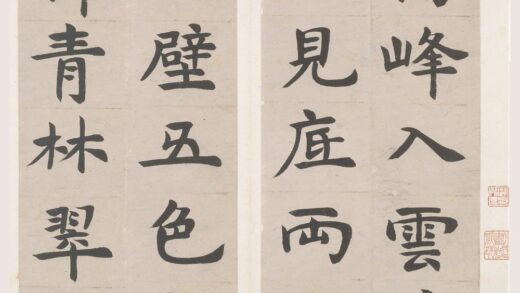 峰入雲
見底両
壁五色
青林翠